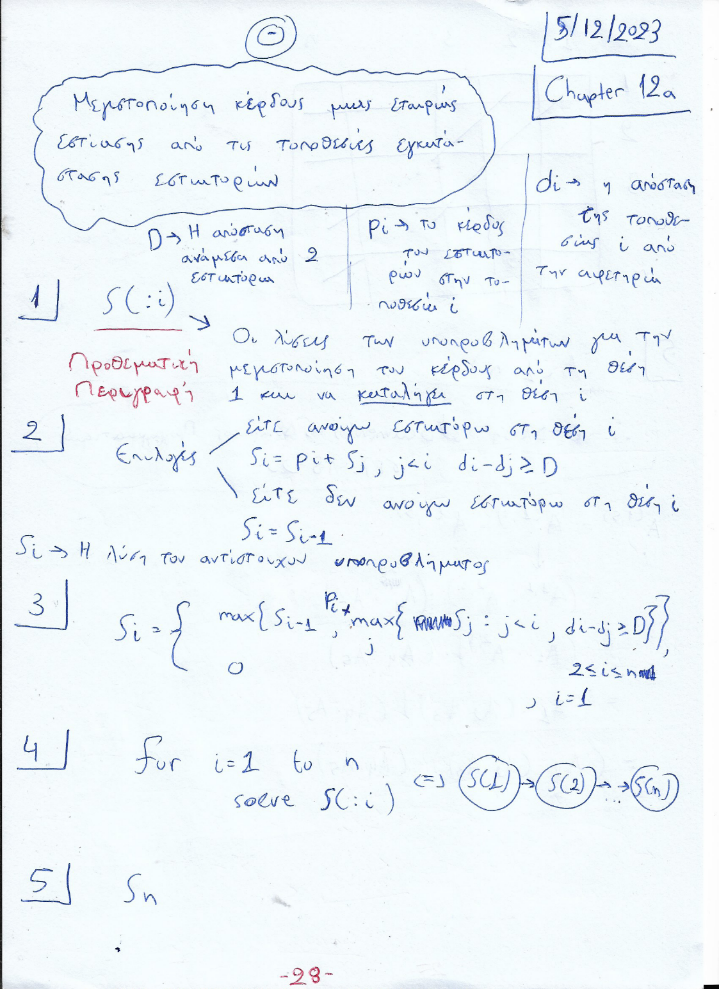 5/12/2023
Chapter 12a
Μεγιστοποίηση κέρδους μιας εταιρίας
εστίασης από τις τοποθεσίες εγκατά-
στασης εστιατορίων
D → Η απόσταση
ανάμεσα από 2
εστιατόρια
pi → το κέρδος
του εστιατο-
ρίων στην το-
ποθεσία i
di → η απόσταση
της τοποθε-
σίας i από
την αφετηρία
1 S(:i)
Προθεματική
Περιγραφή
Οι λύσεις των υποπροβλημάτων για την
μεγιστοποίηση του κέρδους από τη θέση
1 και να καταλήγει στη θέση i
2 Επιλογές
είτε ανοίγω εστιατόριο στη θέση i
Si = pi + Sj, j<i di-dj ≥ D
είτε δεν ανοίγω εστιατόριο στη θέση i
Si = Si-1
Si → Η λύση του αντίστοιχου υποπροβλήματος
3 Si = { max{Si-1, pi + max{Sj : j<i, di-dj ≥ D}},
j
2≤i≤n
0 , i=1
4 for i=1 to n
solve S(:i) <=> S(1) → S(2) → ... → S(n)
5 Sn
-28-